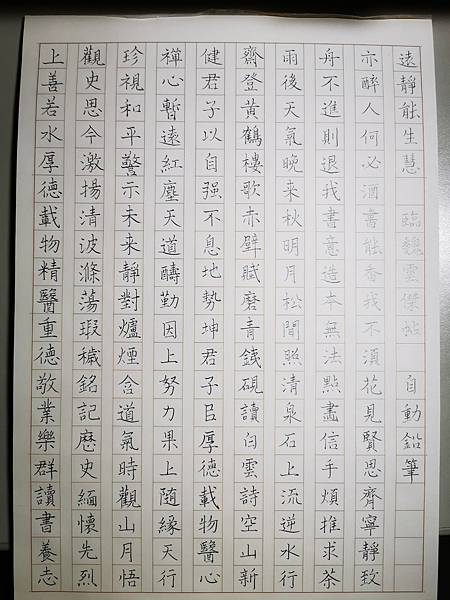 上善若水厚德載物精醫重德敬業樂群讀書養志
觀史思今激揚清波滌蕩瑕穢銘記歷史緬懷先烈
珍視和平警示未来靜對爐煙合道氣時觀山月悟
禪心暫遠紅塵天道醻勤因上努力果上随緣天行
健君子以自强不息地勢坤君子㠯厚德載物醫心
齋登黃鶴樓歌赤壁賦磨青鐵硯讀白雲詩空山新
雨後天氣晚来秋明月松間照清泉石上流逆水行
舟不進則退我書意造本無法點畫信手煩推求茶
亦醉人何必酒書能香我不須花見賢思齊寧靜致
遠靜能生慧 臨魏雲傑帖 自動鉛筆